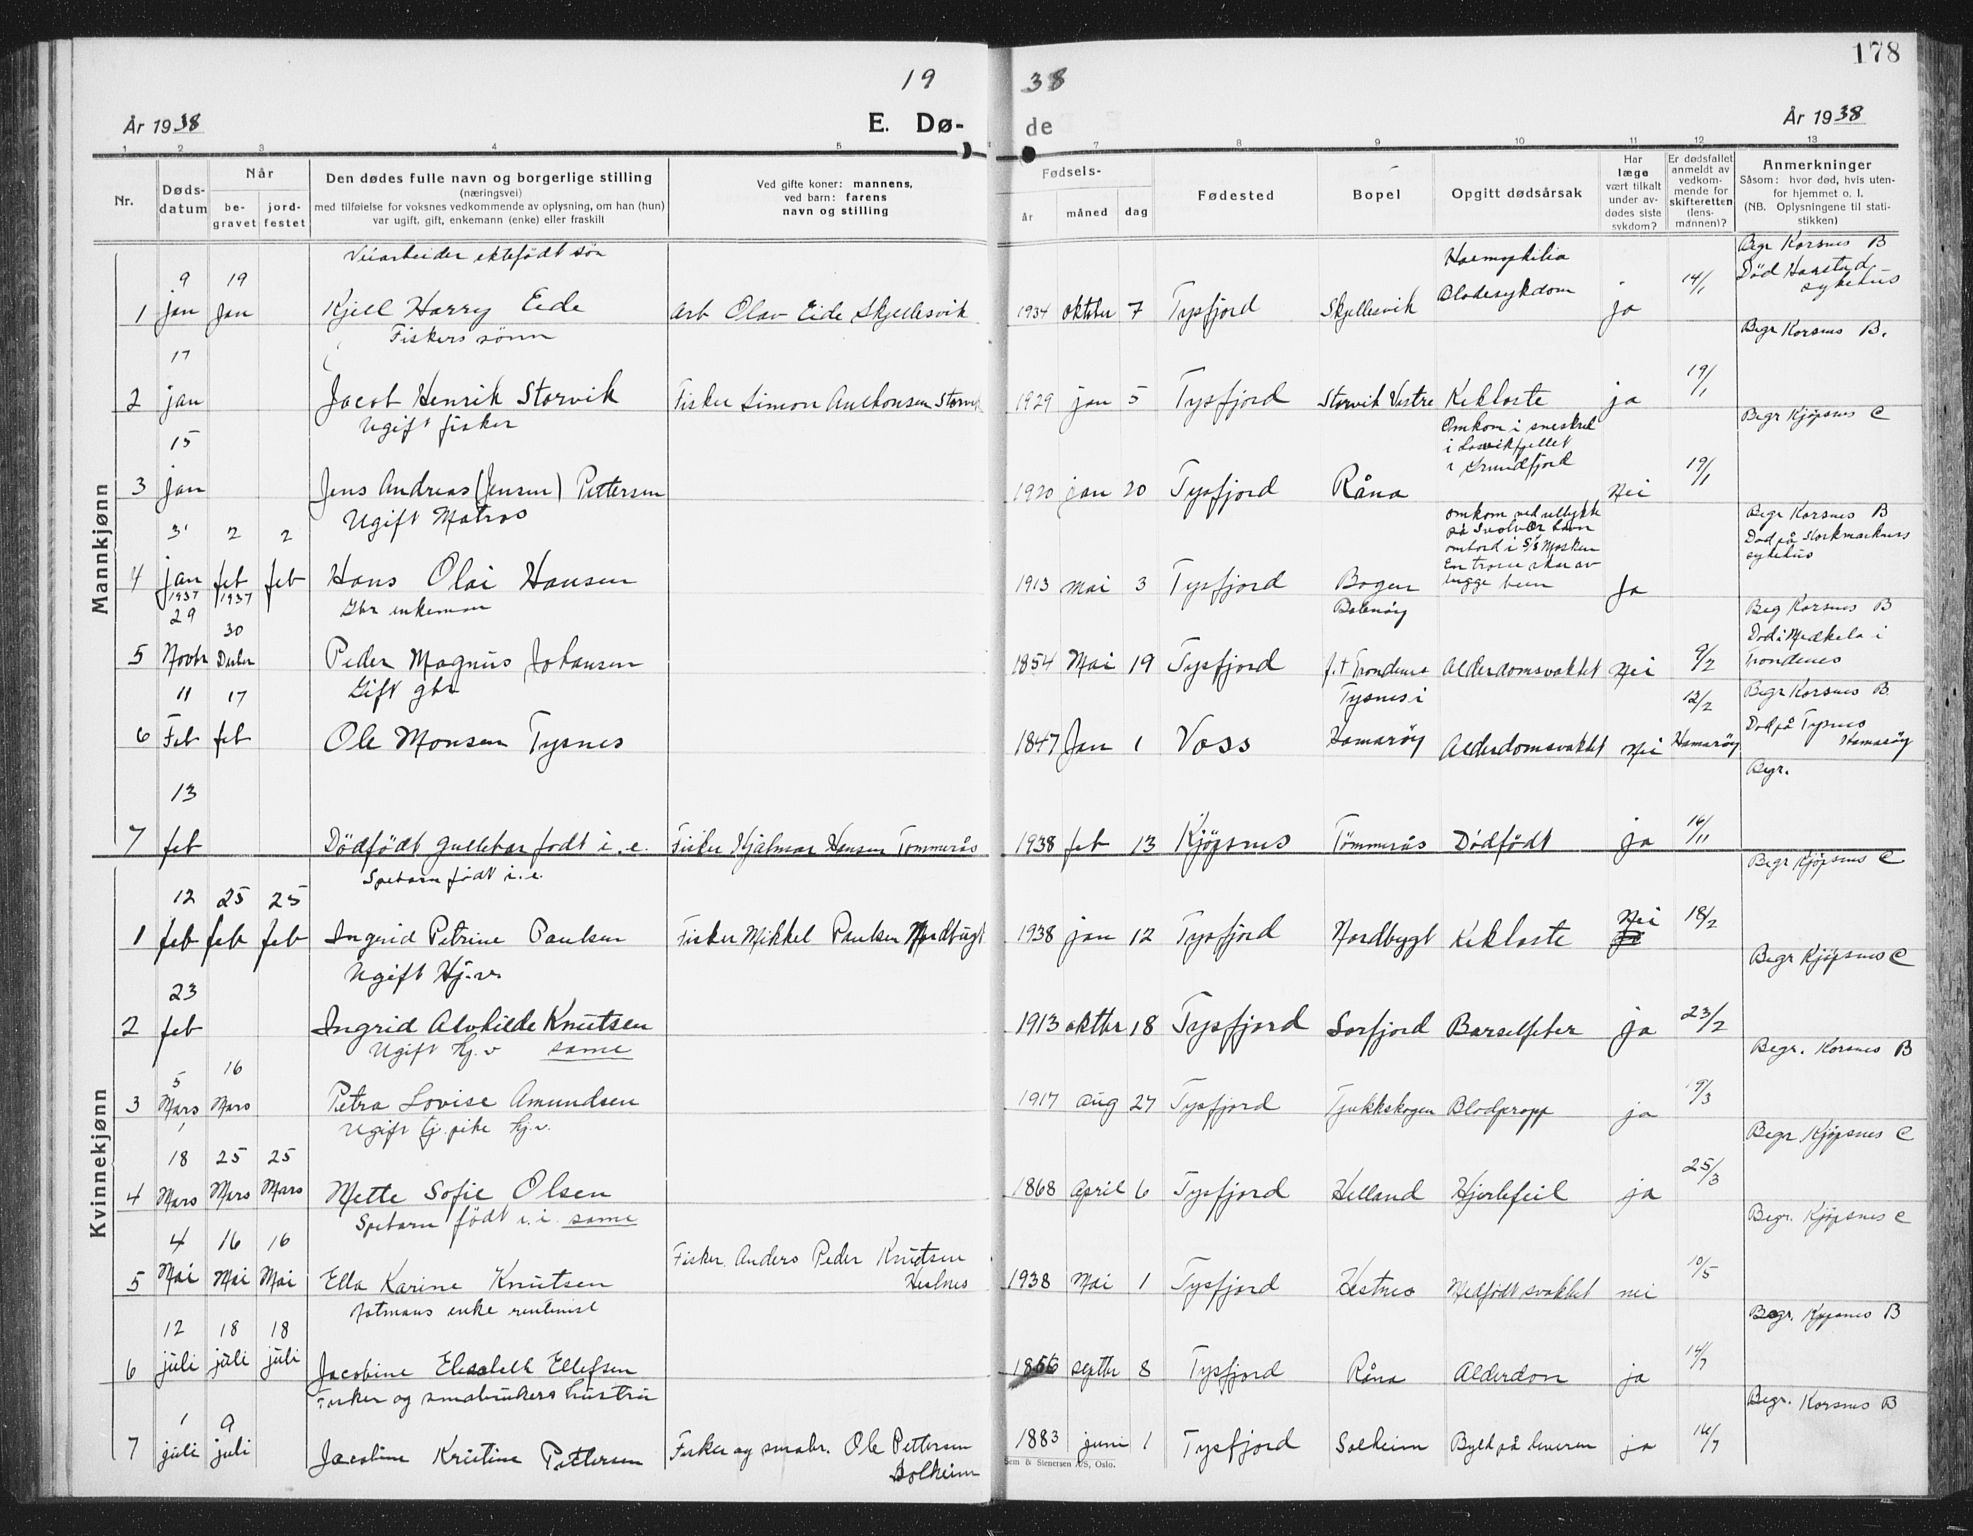 178
19 38
År 1938 E. Dø- de År 1938
1 2 3 4 5 7 8 9 10 11 12 13
Nr.
Døds-
datum
Når
be-
gravet
jord-
festet
Den dødes fulle navn og borgerlige stilling
(næringsvei)
med tilføielse for voksnes vedkommende av oplysning, om han (hun)
var ugift, gift, enkemann (enke) eller fraskilt
Ved gifte koner: mannens,
ved barn: farens
navn og stilling
Fødsels-
år måned dag
Fødested
Bopel
Opgitt dødsårsak
Har
læge
vært tilkalt
under av-
dødes siste
sykdom?
Er dødsfallet
anmeldt av
vedkom-
mende for
skifteretten
(lens-
mannen)?
Anmerkninger
Såsom: hvor død, hvis uten-
for hjemmet o. l.
(NB. Oplysningene til stati-
stikken)
Mannkjønn
Veiarbeider ektefødt søn
1 9 jan 19 jan Kjell Harry Eide Arb Olav Eide Skjellesvik 1934 oktober 7 Tysfjord Skjellesvik Haemophilia Blødesykdom ja 14/1 Begr Korsnes B Død Harstad sykehus
Fiskers sønn
2 17 jan Jacob Henrik Storvik Fisker Simon Anthonsen Storvik 1929 jan 5 Tysfjord Storvik Vestre Kikhoste ja 19/1 Begr Korsnes B.
Ugift fisker
3 15 jan Jens Andreas (Jensen) Pettersen 1920 jan 20 Tysfjord Råna Omkom i sneskred i Losvikfjellet i Grundfjord Nei 19/1 Begr Kjöpsnes C
Ugift Matros
4 31 jan 2 feb 2 feb Hans Olai Hansen 1913 mai 3 Tysfjord Bogen omkom ved ulykke på Svolvær havn ombord i S/S Mosken En trosse skar av begge ben Ja Begr Korsnes B Död på Stokmarknes sykehus
Gbr enkeman
5 1937 29 Novbr 1937 30 Desbr Peder Magnus Johansen 1854 Mai 19 Tysfjord Balnöy f.t Trondenes Alderdomsvakket Nei 9/2 Begr Korsnes B Död i Medkila i Trondenes
Gift gbr
6 11 Feb 17 feb Ole Monsen Tysnes 1847 Jan 1 Voss Tysnes i Hamaröy Alderdomsvakket Nei 12/2 Hamaröy Begr Korsnes B Död på Tysnes Hamaröy
7 13 feb Dödfödt guttebar fodt i.e. Fisker Hjalmar Hansen Tömmerås 1938 feb 13 Kjöpsnes Tömmerås Dödfödt ja 16/11 Begr.
Kvinnekjønn
Spebarn födt i.e.
1 12 feb 25 feb 25 feb Ingrid Petrine Paulsen Fisker Mikkel Paulsen Nordbugt 1938 jan 12 Tysfjord Nordbygt Kikhoste Nei ja 18/2 Begr Kjöpsnes C
Ugift Hj.v.
2 23 feb Ingrid Alvhilde Knutsen 1913 oktbr 18 Tysfjord Sorfjord Barselfeber ja 23/2 Begr Kjöpsnes C
Ugift hj.v same
3 5 Mars 16 Mars Petra Lovise Amundsen 1917 aug 27 Tysfjord Tjukkskogen Blodpropp ja 9/3 Begr. Korsnes B
Ugift tj. pike hj.v.
4 18 Mars 25 Mars 25 Mars Mette Sofie Olsen 1868 April 6 Tysfjord Helland Hjertefeil ja 25/3 Begr Kjöpsnes C
Spebarn födt i.i. same
5 4 Mai 16 Mai 16 Mai Ella Karine Knutsen Fisker Anders Peder Knutsen Hestnes 1938 Mai 1 Tysfjord Hestnes Medfödt svakket nei 10/5 Begr. Kjöpsnes C
enke
6 12 juli 18 juli 18 juli Jacobine Elisabeth Ellefsen 1856 septbr 8 Tysfjord Råna Alderdom ja 14/7 Begr. Kjøpsnes B
Fisker og småbrukers hustru
7 1 juli 9 juli Jacobine Kristine Pettersen Fisker og småbr. Ole Pettersen Solheim 1883 juni 1 Tysfjord Solheim Byld på leveren ja 16/7 Begr. Korsnes B
Sem & Stenersen A/S, Oslo.